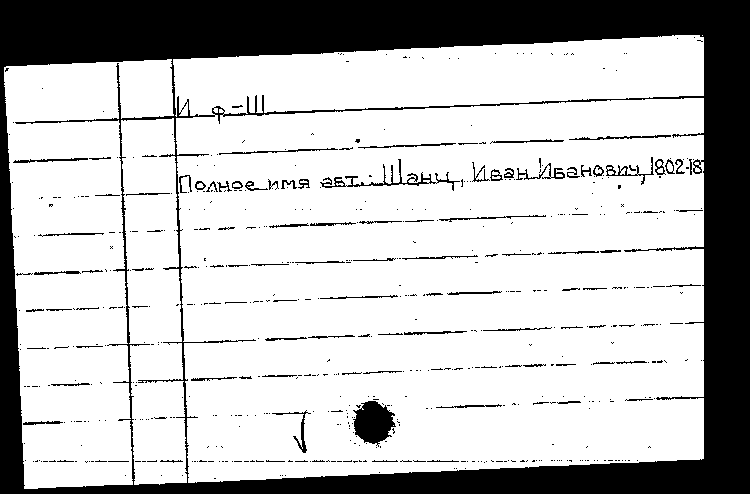 И. ф-Ш
Полное имя авт.: Шанц, Иван Иванович, 1802-18